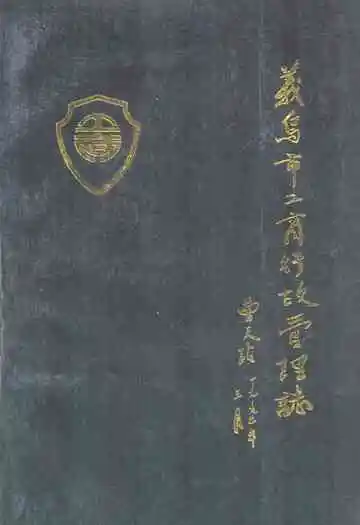 義烏市工商行政管理誌
一九九二年
三月